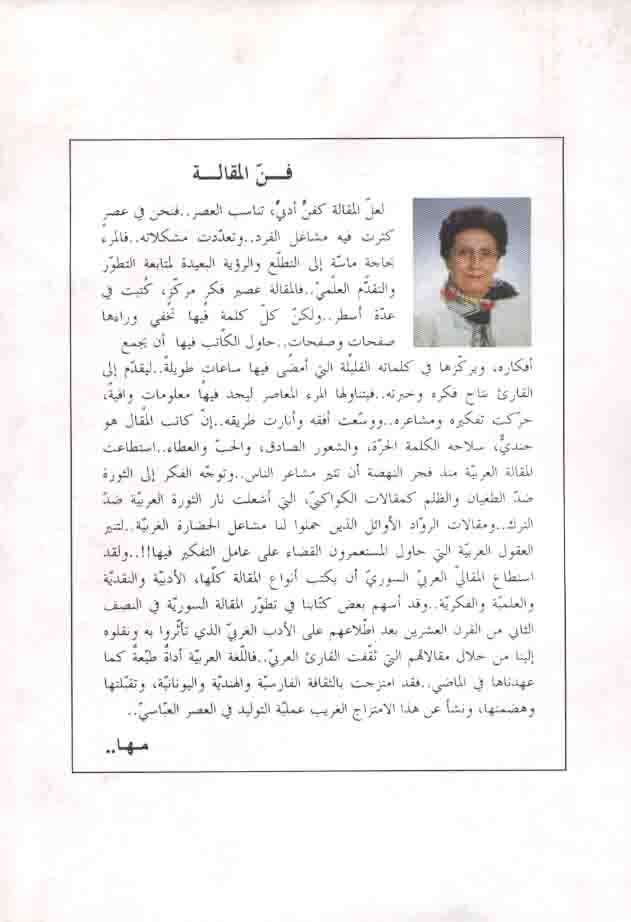 فـنّ المقالـة
لعلّ المقالة كفنٌّ أدبيٌّ، تناسب العصر..فنحن في عصرٍ
كثرت فيه مشاغل الفرد..وتعدّدت مشكلاته..فالمرء
بحاجة ماسّة إلى التطلّع والرؤية البعيدة لمتابعة التطوّر
والتقدّم العلميّ..فالمقالة عصير فكرٍ مركّزٍ، كُتبت في
عدّة أسطر..ولكنّ كلّ كلمة فيها تخفي وراءها
صفحات وصفحات..حاول الكاتب فيها أن يجمع
أفكاره، ويركّزها في كلماته القليلة التي أمضى فيها ساعاتٍ طويلةً..ليقدّم إلى
القارئ نتاج فكره وخبرته..فيتناولها المرء المعاصر ليجد فيها معلومات وافية،
حرّكت تفكيره ومشاعره..ووسّعت أفقه وأنارت طريقه..إنّ كاتب المقال هو
جنديٌّ، سلاحه الكلمة الحرّة، والشعور الصادق، والحبّ والعطاء..استطاعت
المقالة العربيّة منذ فجر النهضة أن تثير مشاعر الناس..وتوجّه الفكر إلى الثورة
ضدّ الطغيان والظلم كمقالات الكواكبيّ، التي أشعلت نار الثورة العربيّة ضدّ
الترك..ومقالات الروّاد الأوائل الذين حملوا لنا مشاعل الحضارة الغربيّة..لتنير
العقول العربيّة التي حاول المستعمرون القضاء على عامل التفكير فيها!!..ولقد
استطاع المقاليّ العربيّ السوريّ أن يكتب أنواع المقالة كلّها، الأدبيّة والنقديّة
والعلميّة والفكريّة..وقد أسهم بعض كتّابنا في تطوّر المقالة السوريّة في النصف
الثاني من القرن العشرين بعد اطّلاعهم على الأدب الغربيّ الذي تأثّروا به ونقلوه
إلينا من خلال مقالاتهم التي ثقّفت القارئ العربيّ..فاللّغة العربيّة أداةٌ طيّعةٌ كما
عهدناها في الماضي..فقد امتزجت بالثقافة الفارسيّة والهنديّة واليونانيّة، وتقبّلتها
وهضمتها، ونشأ عن هذا الامتزاج الغريب عمليّة التوليد في العصر العبّاسيّ..
مـهـا..